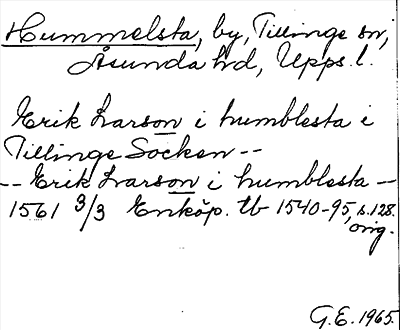 Hummelsta, by, Tillinge sn,
Åsunda hd, Upps. l.
Erik Larson i humblesta i
Tillinge Socken --
-- Erik Larson i humblesta --
1561 3/3 Enköp. tb 1540-95, s. 128.
orig.
G.E. 1965.